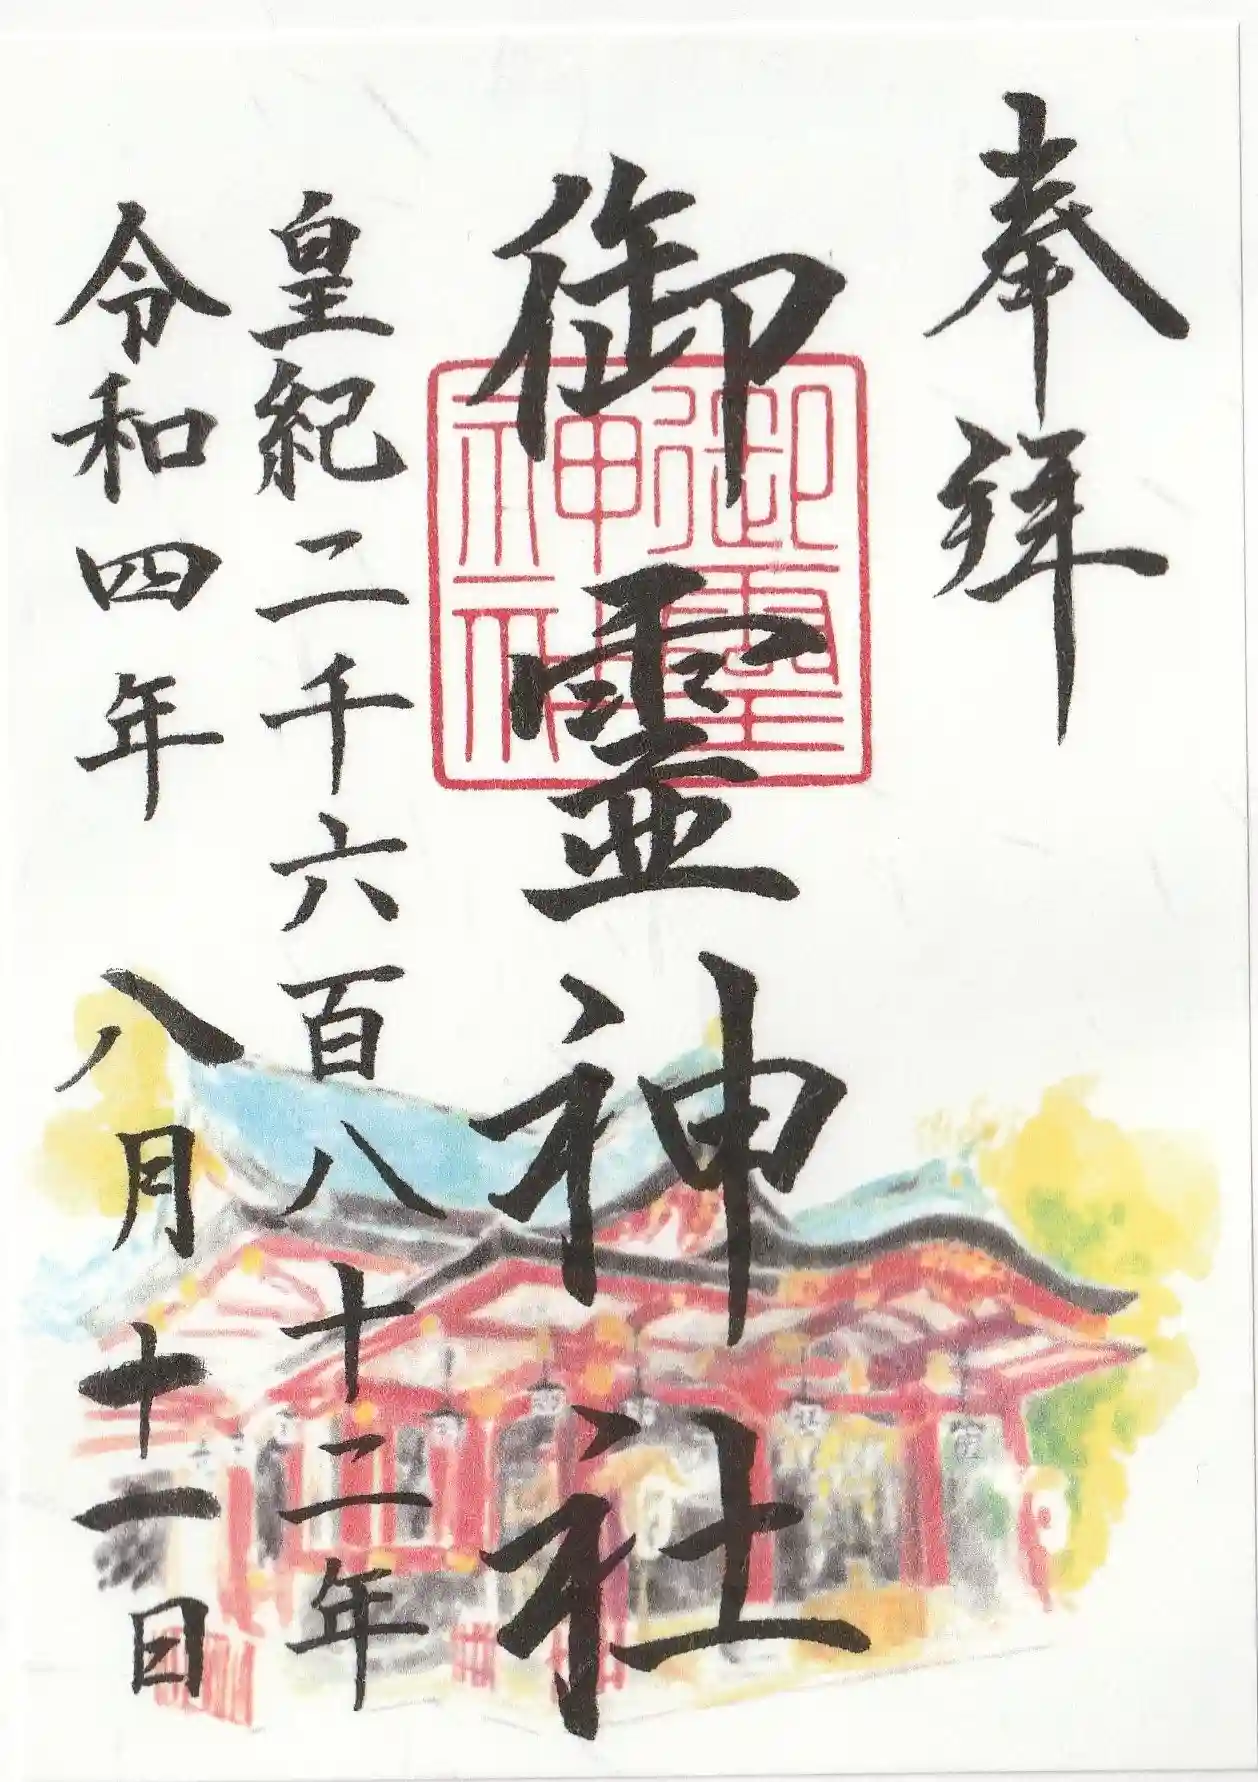 奉拝
御靈神社
御靈神社
皇紀二千六百八十二年
令和四年 八月十一日